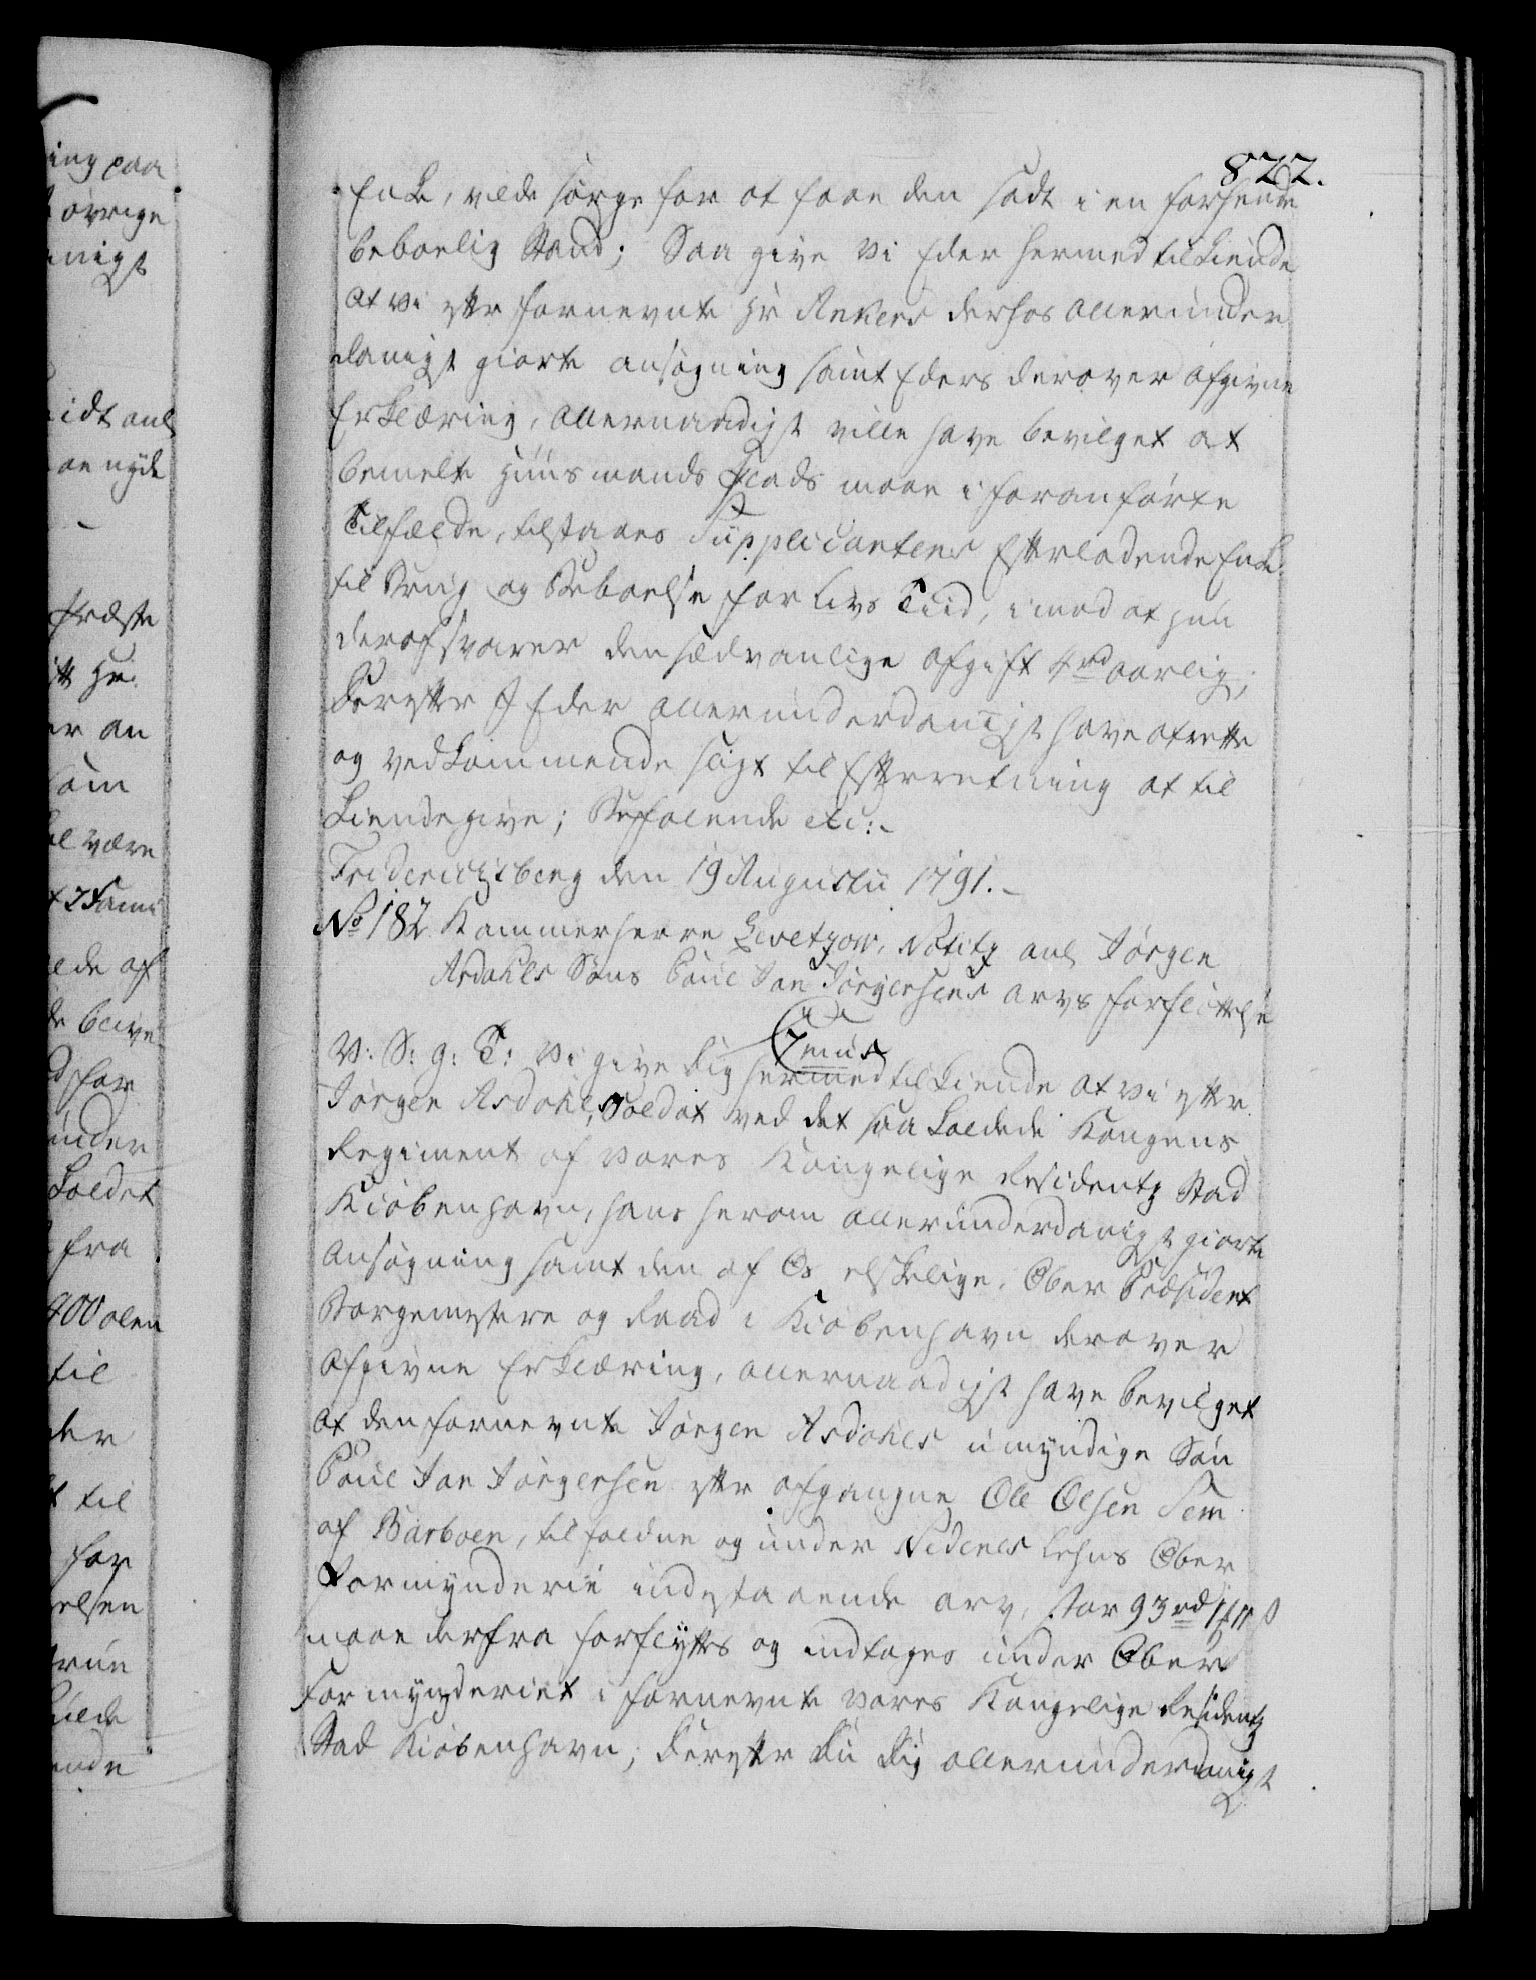 822.
Enke, vilde sørge for at faae den sadt i en forsende
beboelig Stand; Saa give Vi Eder hermed tilkiende
at Vi efter fornevnte Hr Ankers derhos allerunder
danigst giorte ansøgning samt Eders derover afgivne
Erklæring, allernaadigst ville have bevilget at
bemelte Huusmands Plads maae i foranførte
Tilfælde, tilstaaes Supplicantens Efterladende Enke
til Brug og Beboelse for Livs Tiid, imod at hun
deraf svarer den sædvanlige afgift 4 rd aarlig;
Derefter I Eder allerunderdanigst have at rette
og vedkommende sligt til Efterretning at til
kiendegive; Befalende etc:
Friderichsberg den 19 Augustii 1791.
No 182 Kammerherre Levetzow, Notitz anl Jørgen
Asdahls Søns Poul Jan Jørgensens arvs forflöttelse
V: S: g: T: Vi give dig hermed tilkiende at Vi efter
Jørgen Asdahl, Soldat ved det saa kaldede Kongens
Regiment af vores Kongelige Residentz Stad
Kiøbenhavn, hans herom allerunderdanigst giorte
Ansøgning samt den af Os elskelige, Ober Præsident
Borgemestere og Raad i Kiøbenhavn derover
afgivne Erklæring, allernaadigst have bevilget
at den fornevnte Jørgen Asdahls umyndige Søn
Poul Jan Jørgensen efter afgangne Ole Olsen Sem
af Barboen, tilfaldne og under Nedenes Lehns Ober
Formynderie indestaaende arv, stor 93 rd
maae derfra forflyttes og indtages under Ober
Formynderiet i fornevnte vores Kongelige Residentz
Stad Kiøbenhavn; Derefter Du Dig allerunderdanigst